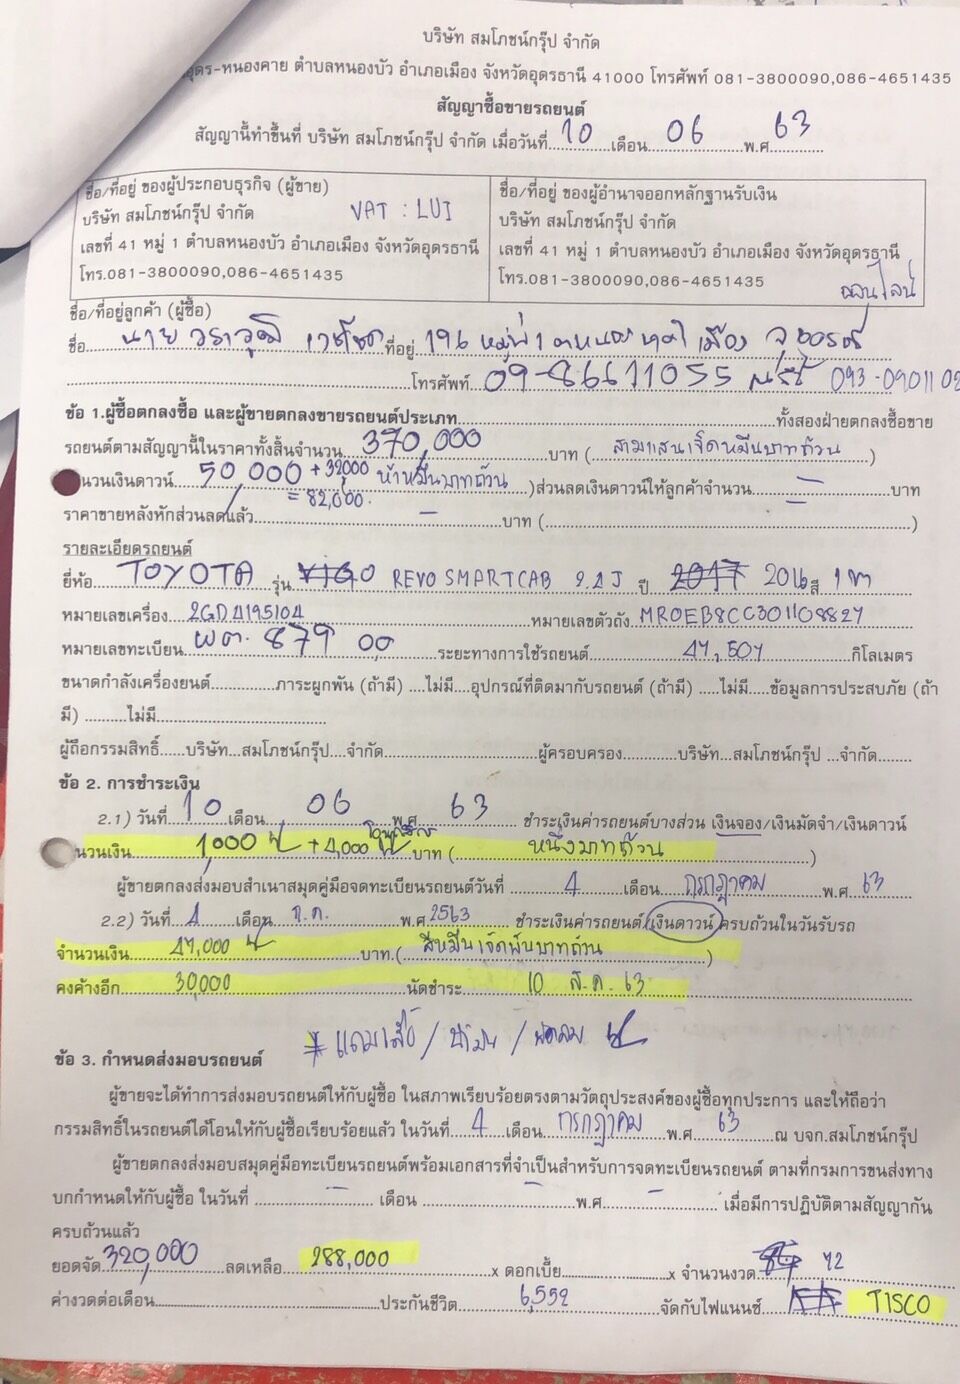 บริษัท สมโภชน์กรุ๊ป จำกัด
อุดร-หนองคาย ตำบลหนองบัว อำเภอเมือง จังหวัดอุดรธานี 41000 โทรศัพท์ 081-3800090,086-4651435
สัญญาซื้อขายรถยนต์
สัญญานี้ทำขึ้นที่ บริษัท สมโภชน์กรุ๊ป จำกัด เมื่อวันที่ 10 เดือน 06 พ.ศ 63
ชื่อ/ที่อยู่ ของผู้ประกอบธุรกิจ (ผู้ขาย)
บริษัท สมโภชน์กรุ๊ป จำกัด VAT : LUI
เลขที่ 41 หมู่ 1 ตำบลหนองบัว อำเภอเมือง จังหวัดอุดรธานี
โทร.081-3800090,086-4651435
ชื่อ/ที่อยู่ ของผู้อำนาจออกหลักฐานรับเงิน
บริษัท สมโภชน์กรุ๊ป จำกัด
เลขที่ 41 หมู่ 1 ตำบลหนองบัว อำเภอเมือง จังหวัดอุดรธานี
โทร.081-3800090,086-4651435 ออนไลน์
ชื่อ/ที่อยู่ลูกค้า (ผู้ซื้อ)
ชื่อ นาย วราวุฒิ ที่อยู่ 196 หมู่ 1 เมือง จ.อุดรธานี
โทรศัพท์ 09-86611055 093-090110
ข้อ 1.ผู้ซื้อตกลงซื้อ และผู้ขายตกลงขายรถยนต์ประเภท ทั้งสองฝ่ายตกลงซื้อขาย
รถยนต์ตามสัญญานี้ในราคาทั้งสิ้นจำนวน 370,000 บาท ( สามแสนเจ็ดหมื่นบาทถ้วน )
นวนเงินดาวน์ 50,000 +32000 ห้าหมื่นบาทถ้วน )ส่วนลดเงินดาวน์ให้ลูกค้าจำนวน - บาท
= 82,000.
ราคาขายหลังหักส่วนลดแล้ว - บาท ( )
รายละเอียดรถยนต์
ยี่ห้อ TOYOTA รุ่น REVO SMARTCAB 2.4 J ปี 2017 2016 สี เทา
หมายเลขเครื่อง 2GD4195104 หมายเลขตัวถัง MROEB8CC301108827
หมายเลขทะเบียน ผต. 879 ระยะทางการใช้รถยนต์ 47,507 กิโลเมตร
ขนาดกำลังเครื่องยนต์ ภาระผูกพัน (ถ้ามี) ....ไม่มี....อุปกรณ์ที่ติดมากับรถยนต์ (ถ้ามี) .....ไม่มี....ข้อมูลการประสบภัย (ถ้า
มี) .........ไม่มี
ผู้ถือกรรมสิทธิ์......บริษัท...สมโภชน์กรุ๊ป....จำกัด ผู้ครอบครอง บริษัท...สมโภชน์กรุ๊ป ...จำกัด
ข้อ 2. การชำระเงิน
2.1) วันที่ 10 เดือน 06 พ.ศ 63 ชำระเงินค่ารถยนต์บางส่วน เงินจอง/เงินมัดจำ/เงินดาวน์
นวนเงิน 1,000 + 4,000 บาท ( หนึ่งบาทถ้วน )
ผู้ขายตกลงส่งมอบสำเนาสมุดคู่มือจดทะเบียนรถยนต์วันที่ 4 เดือน กรกฎาคม พ.ศ 63
2.2) วันที่ 4 เดือน ก.ค. พ.ศ.2563 ชำระเงินค่ารถยนต์/เงินดาวน์ ครบถ้วนในวันรับรถ
จำนวนเงิน 47,000 บาท.( สี่หมื่นเจ็ดพันบาทถ้วน )
คงค้างอีก 30,000 นัดชำระ 10 ส.ค. 63
* แถมเสื้อ
ข้อ 3. กำหนดส่งมอบรถยนต์
ผู้ขายจะได้ทำการส่งมอบรถยนต์ให้กับผู้ซื้อ ในสภาพเรียบร้อยตรงตามวัตถุประสงค์ของผู้ซื้อทุกประการ และให้ถือว่า
กรรมสิทธิ์ในรถยนต์ได้โอนให้กับผู้ซื้อเรียบร้อยแล้ว ในวันที่ 4 เดือน กรกฎาคม พ.ศ 63 ณ บจก.สมโภชน์กรุ๊ป
ผู้ขายตกลงส่งมอบสมุดคู่มือทะเบียนรถยนต์พร้อมเอกสารที่จำเป็นสำหรับการจดทะเบียนรถยนต์ ตามที่กรมการขนส่งทาง
บกกำหนดให้กับผู้ซื้อ ในวันที่ - เดือน - พ.ศ - เมื่อมีการปฏิบัติตามสัญญากัน
ครบถ้วนแล้ว
ยอดจัด 320,000 ลดเหลือ 288,000 x ดอกเบี้ย x จำนวนงวด 72
ค่างวดต่อเดือน ประกันชีวิต 6,552 จัดกับไฟแนนซ์ TISCO